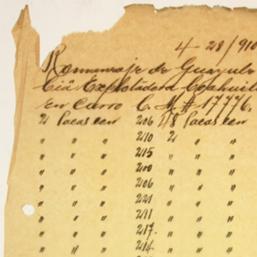 4-28/910
Romeneaje de Guayule
Ciâ Explotadora Coahuila
en Carro C. M # 17776.
21 Pacas con 206 218 Pacas con
" " " 210 21 " "
" " " 215 " " "
" " " 200 " " "
" " " 206 " " "
" " " 221 " " "
" " " 211 " " "
" " " 217. " " "
" " " 214 " " "